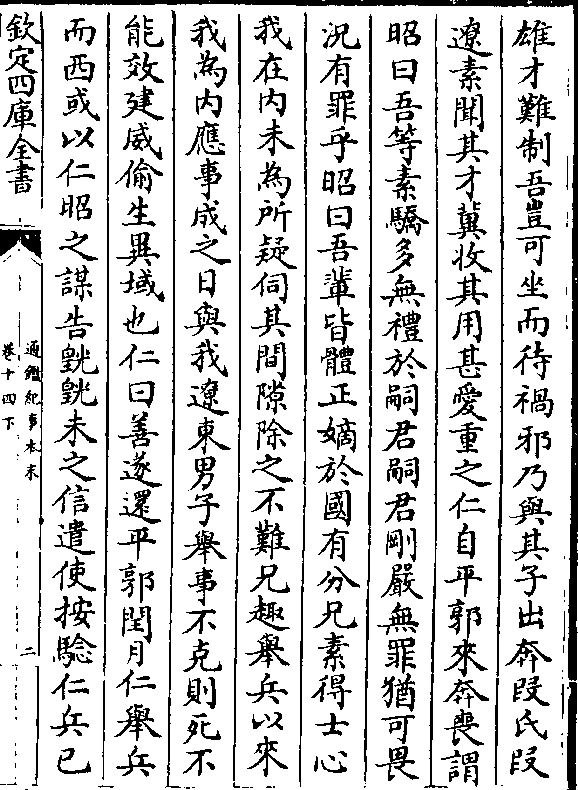 雄才難制吾豈可坐而待禍邪乃與其子出奔段氏段
遼素聞其才冀收其用甚愛重之仁自平郭來奔喪謂
昭曰吾等素驕多無禮於嗣君嗣君剛嚴無罪猶可畏
況有罪乎昭曰吾輩皆體正嫡於國有分兄素得士心
我在内未為所疑伺其間隙除之不難兄趣舉兵以來
我為内應事成之日與我遼東男子舉事不克則死不
能效建威偷生異域也仁曰善遂還平郭閏月仁舉兵
而西或以仁昭之謀告皝皝未之信遣使按驗仁兵已
欽定四庫全書
通鑑紀事本末
卷十四下
二